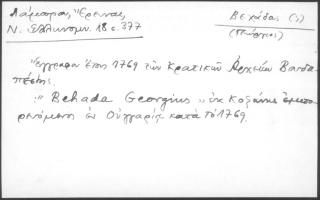 Λάμπρου, Ἔρευναι,
Ν. Ἑλληνομν. 18 σ. 377
Βεχάδας (;)
(Γεώργιος)
Ἔγγραφον ἔτους 1769 τῶν Κρατικῶν Ἀρχείων Βουδα-
πέστης.
"Behada Georgius" ἐκ Κοζάνης ἐμπο-
ρευόμενος ἐν Οὑγγαρίᾳ κατὰ τὸ 1769.